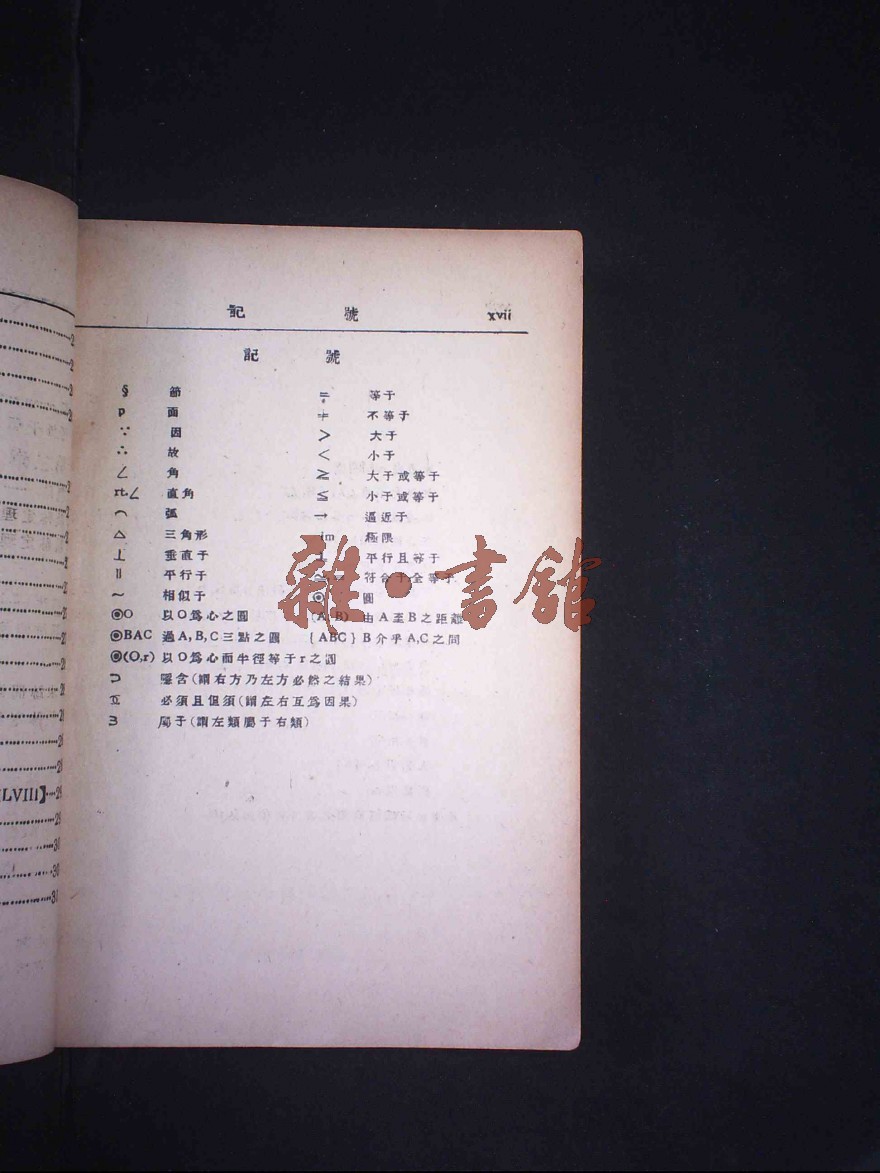 記 號 xvii
記 號
§ 節 = 等于
p 面 ≠ 不等于
∵ 因 > 大于
∴ 故 < 小于
∠ 角 ≧ 大于或等于
rt.∠ 直角 ≦ 小于或等于
⌒ 弧 → 逼近于
△ 三角形 lim 極限
⊥ 垂直于 平行且等于
∥ 平行于 符合于,全等于
~ 相似于 ◉ 圓
◉O 以O爲心之圓 (A,B) 由A至B之距離
◉BAC 過A,B,C三點之圓 {ABC} B介乎A,C之間
◉(O,r) 以O爲心而半徑等于r之圓
⊃ 隱含(謂右方乃左方必然之結果)
必須且但須(謂左右互爲因果)
∃ 屬于(謂左類屬于右類)
雜·書館
LVIII】
29
29
30
30
31